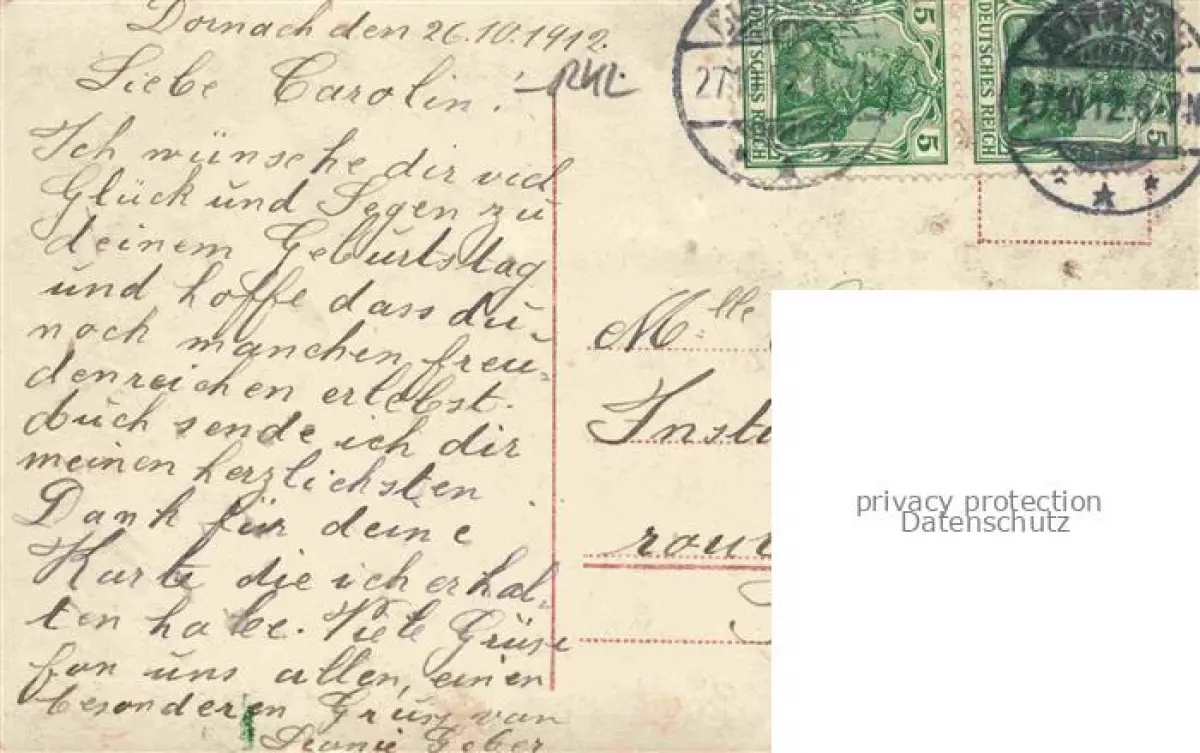 Dornach den 26.10.1912.
Liebe Carolin!
Ich wünsche dir viel
Glück und Segen zu
deinem Geburtstag
und hoffe dass du
noch manchen freu-
denreichen erlebst.
Auch sende ich dir
meinen herzlichsten
Dank für deine
Karte die ich erhal-
ten habe. Viele Grüse
fon uns allen, einen
besonderen Grus von
Geber
DEUTSCHES REICH 5 5
DEUTSCHES REICH 5
27.10.12.6-7N
Mlle
privacy protection
Datenschutz